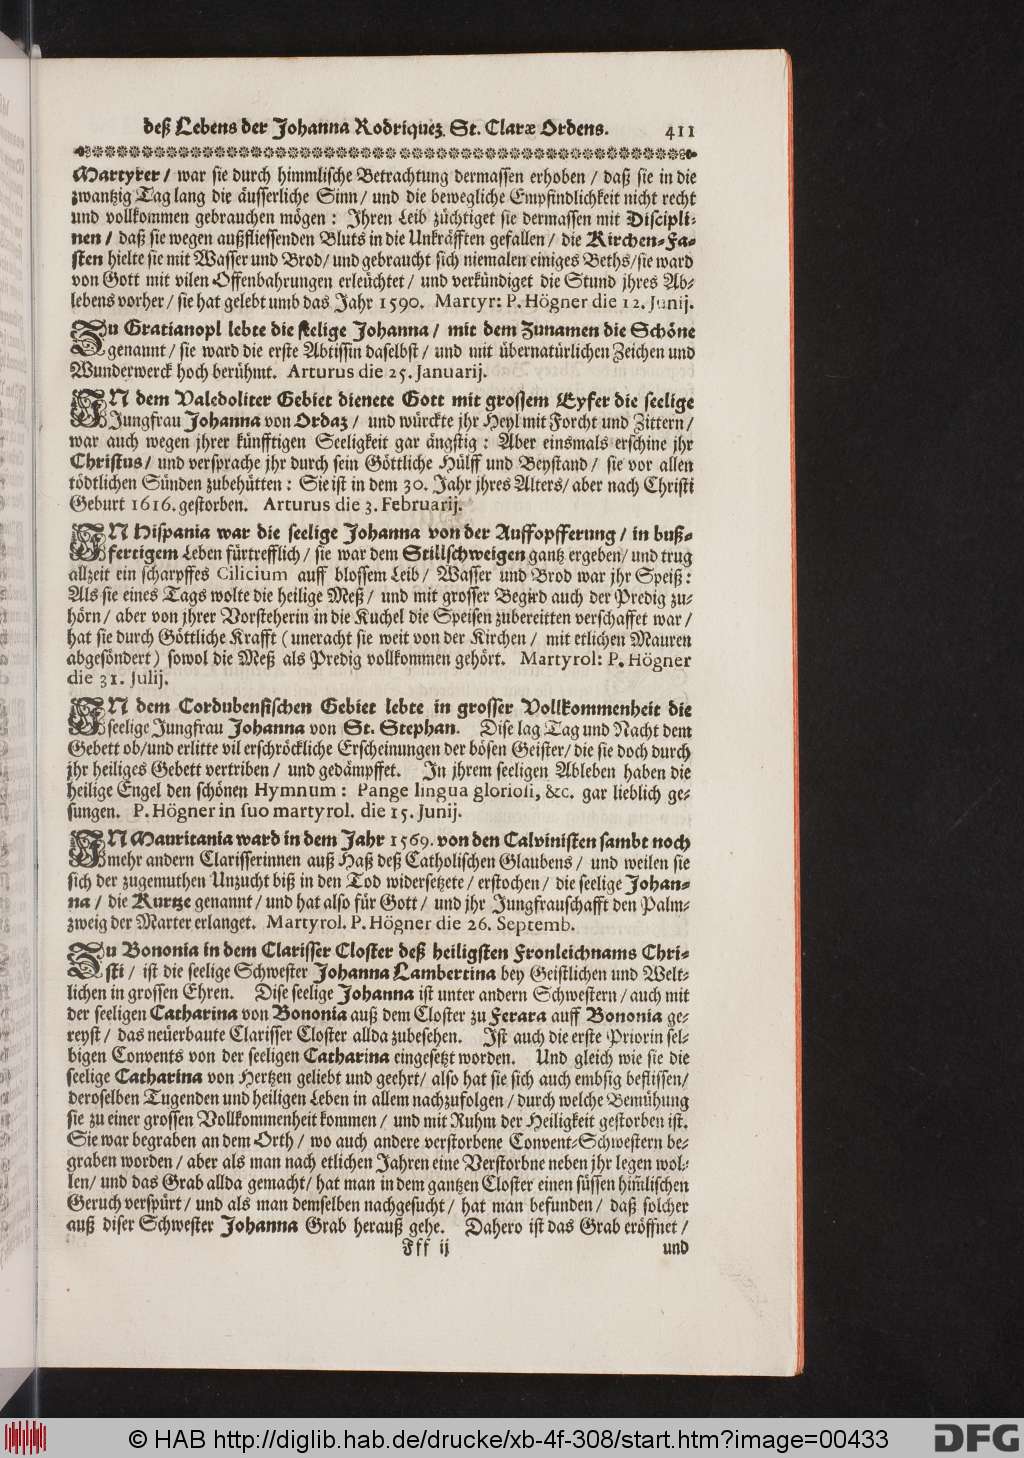 deß Lebens der Johanna Rodriquez. St. Claræ Ordens. 411
Martyrer / war sie durch himmlische Betrachtung dermassen erhoben / daß sie in die
zwantzig Tag lang die äusserliche Sinn / und die bewegliche Empfindlichkeit nicht recht
und vollkommen gebrauchen mögen : Ihren Leib züchtiget sie dermassen mit Discipli-
nen / daß sie wegen außfliessenden Bluts in die Unkräfften gefallen / die Kirchen-Fa-
sten hielte sie mit Wasser und Brod / und gebraucht sich niemalen einiges Beths / sie ward
von Gott mit vilen Offenbahrungen erleüchtet / und verkündiget die Stund jhres Ab-
lebens vorher / sie hat gelebt umb das Jahr 1590. Martyr: P. Högner die 12. Junij.
Zu Gratianopl lebte die seelige Johanna / mit dem Zunamen die Schöne
genannt / sie ward die erste Abtissin daselbst / und mit übernatürlichen Zeichen und
Wunderwerck hoch berühmt. Arturus die 25. Januarij.
IN dem Valedoliter Gebiet dienete Gott mit grossem Eyfer die seelige
Jungfrau Johanna von Ordaz / und würckte jhr Heyl mit Forcht und Zittern /
war auch wegen jhrer künfftigen Seeligkeit gar ängstig : Aber einsmals erschine jhr
Christus / und versprache jhr durch sein Göttliche Hülff und Beystand / sie vor allen
tödtlichen Sünden zubehütten : Sie ist in dem 30. Jahr jhres Alters / aber nach Christi
Geburt 1616. gestorben. Arturus die 3. Februarij.
IN Hispania war die seelige Johanna von der Auffopfferung / in buß-
fertigem Leben fürtrefflich / sie war dem Stillschweigen gantz ergeben / und trug
allzeit ein scharpffes Cilicium auff blossem Leib / Wasser und Brod war jhr Speiß :
Als sie eines Tags wolte die heilige Meß / und mit grosser Begird auch der Predig zu-
hörn / aber von jhrer Vorsteherin in die Kuchel die Speisen zubereitten verschaffet war /
hat sie durch Göttliche Krafft ( uneracht sie weit von der Kirchen / mit etlichen Mauren
abgesöndert ) sowol die Meß als Predig vollkommen gehört. Martyrol: P. Högner
die 31. Julij.
IN dem Cordubensischen Gebiet lebte in grosser Vollkommenheit die
seelige Jungfrau Johanna von St. Stephan. Dise lag Tag und Nacht dem
Gebett ob / und erlitte vil erschröckliche Erscheinungen der bösen Geister / die sie doch durch
jhr heiliges Gebett vertriben / und gedämpffet. In jhrem seeligen Ableben haben die
heilige Engel den schönen Hymnum : Pange lingua gloriosi, &c. gar lieblich ge-
sungen. P. Högner in suo martyrol. die 15. Junij.
IN Mauritania ward in dem Jahr 1569. von den Calvinisten sambt noch
mehr andern Clarisserinnen auß Haß deß Catholischen Glaubens / und weilen sie
sich der zugemuthen Unzucht biß in den Tod widersetzete / erstochen / die seelige Johan-
na / die Kurtze genannt / und hat also für Gott / und jhr Jungfrauschafft den Palm-
zweig der Marter erlanget. Martyrol. P. Högner die 26. Septemb.
Zu Bononia in dem Clarisser Closter deß heiligsten Fronleichnams Chri-
sti / ist die seelige Schwester Johanna Lambertina bey Geistlichen und Welt-
lichen in grossen Ehren. Dise seelige Johanna ist unter andern Schwestern / auch mit
der seeligen Catharina von Bononia auß dem Closter zu Ferara auff Bononia ge-
reyst / das neüerbaute Clarisser Closter allda zubesehen. Ist auch die erste Priorin sel-
bigen Convents von der seeligen Catharina eingesetzt worden. Und gleich wie sie die
seelige Catharina von Hertzen geliebt und geehrt / also hat sie sich auch embsig beflissen /
deroselben Tugenden und heiligen Leben in allem nachzufolgen / durch welche Bemühung
sie zu einer grossen Vollkommenheit kommen / und mit Ruhm der Heiligkeit gestorben ist.
Sie war begraben an dem Orth / wo auch andere verstorbene Convent-Schwestern be-
graben worden / aber als man nach etlichen Jahren eine Verstorbne neben jhr legen wol-
len / und das Grab allda gemacht / hat man in dem gantzen Closter einen süssen him̃lischen
Geruch verspürt / und als man demselben nachgesucht / hat man befunden / daß solcher
auß diser Schwester Johanna Grab herauß gehe. Dahero ist das Grab eröffnet /
Fff ij und
© HAB http://diglib.hab.de/drucke/xb-4f-308/start.htm?image=00433
DFG